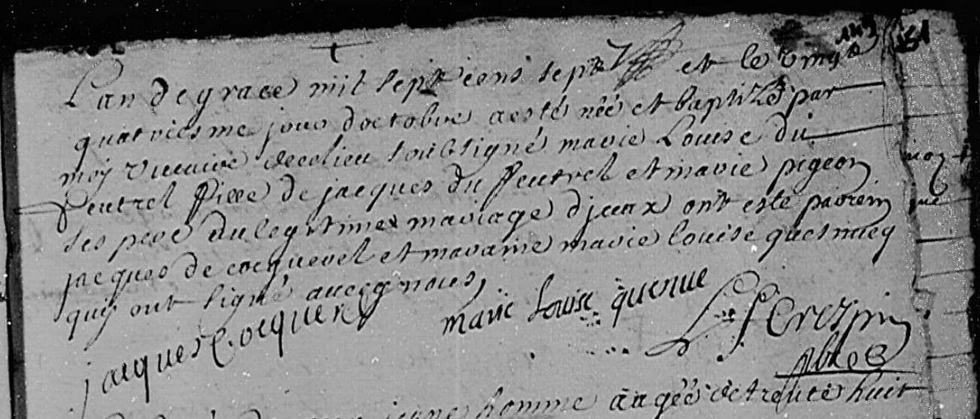 L'an de grace mil sept cens sept et le vingt
quatriesme jour d'octobre a esté née et baptizé par
moy vicaire de ce lieu soubsigné marie Louise du
feutrel fille de jacques du feutrel et marie pigeon
ses pere du legitime mariage d'jceux ont esté parrein
jacques de cocquerel et maraine marie louise quesnuey
quy ont signé avecq nous
jacques Cocquerel
marie louise quenue
L. Crespin
jeune homme aagée de trente huit